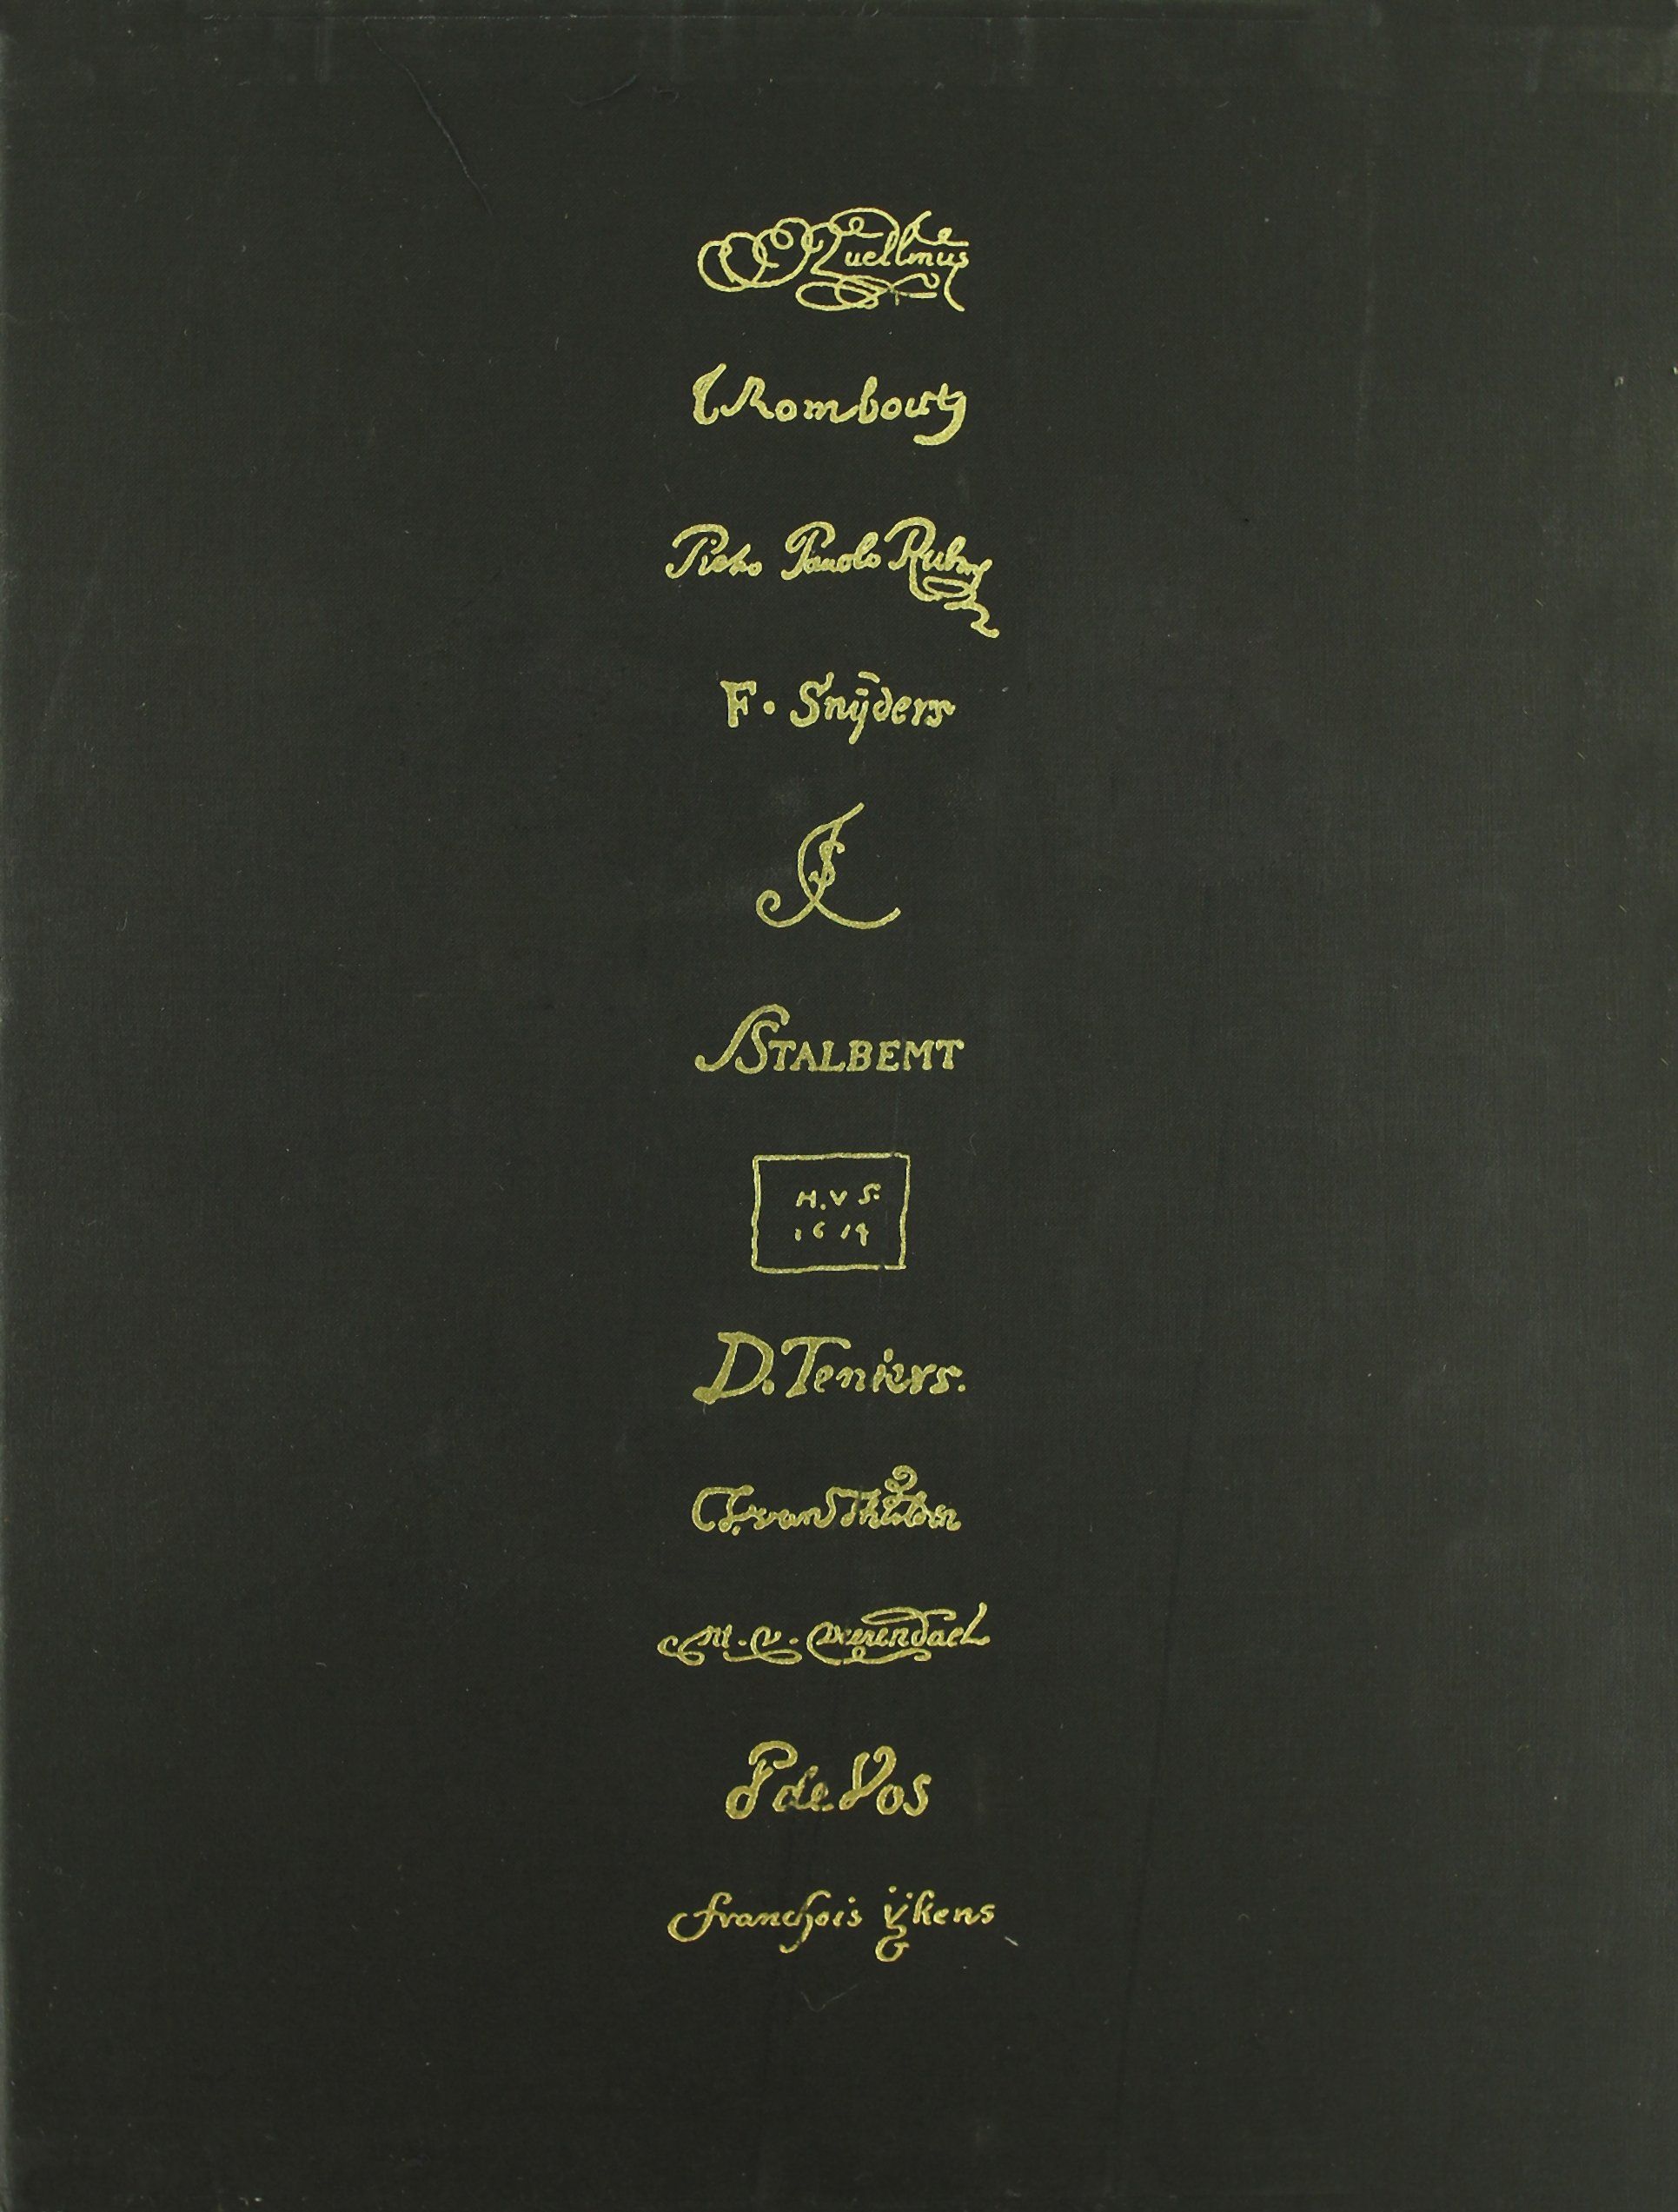 Quellinus
TRombouts
Pietro Pauolo Rubens
F. Snÿders
JS
STALBEMT
H.V S:
1614
D. Teniers.
T. van Thulden
M. v. Verendael
P de Vos
franchois ÿkens